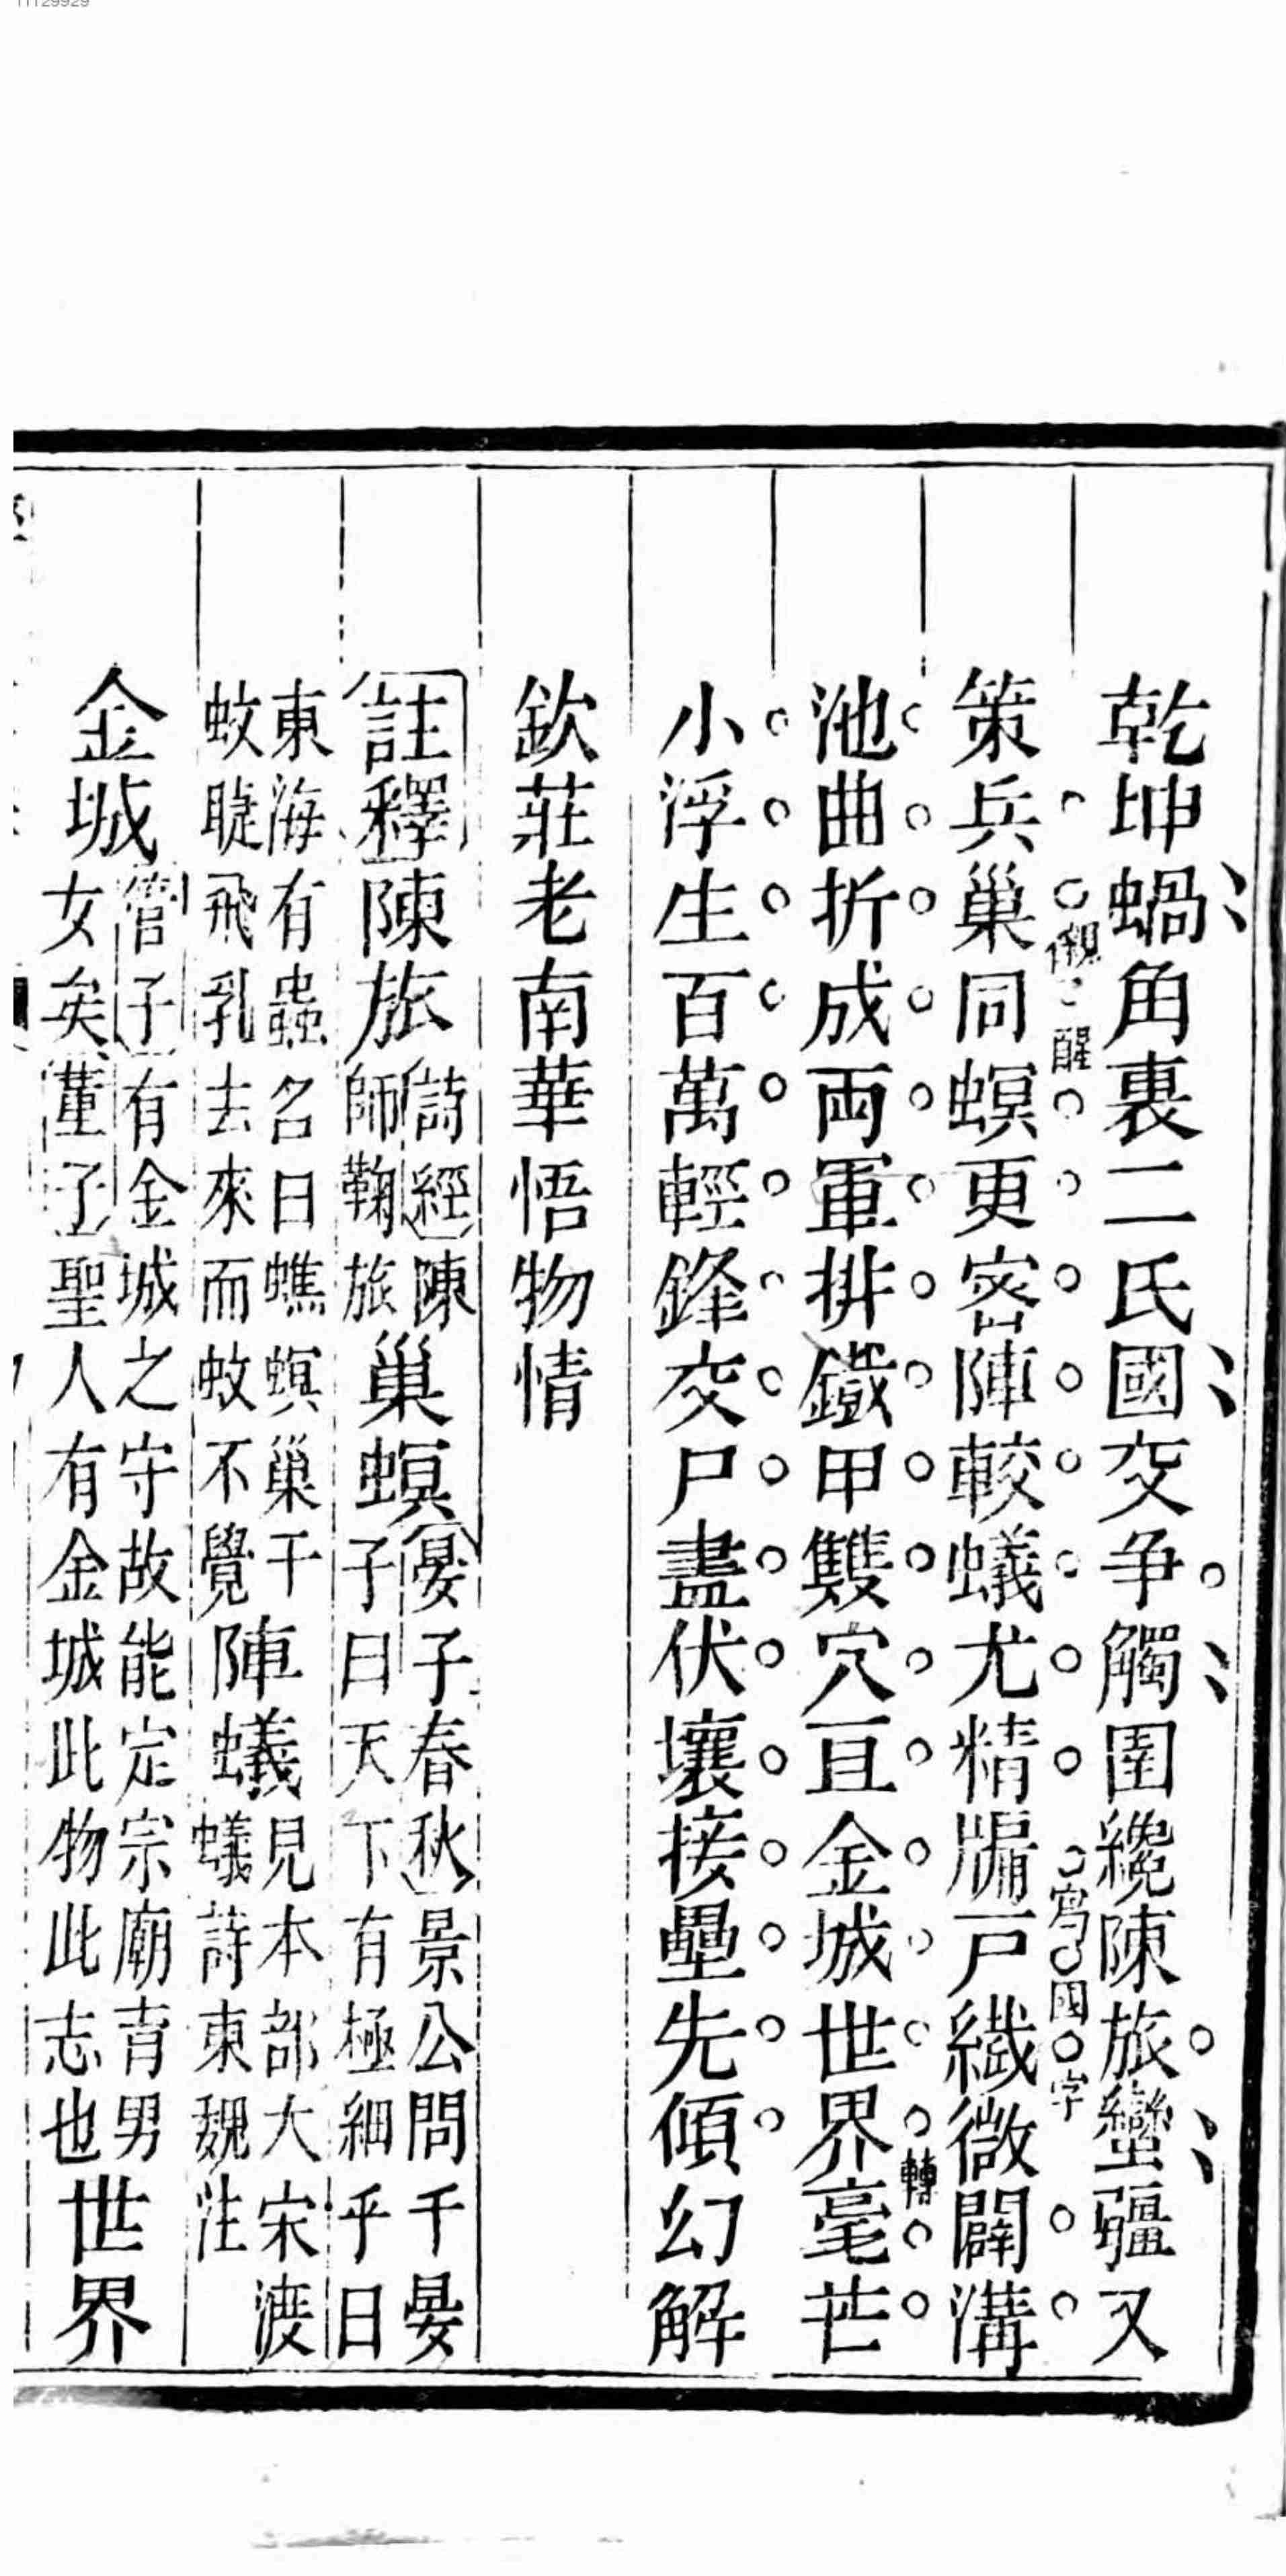 乾坤蝸角裏二氏國交爭觸圉纔陳旅蠻疆又
策兵巢同螟更密陣較蟻尤精牖戸纎微闢溝
醒
寫國字
池曲折成両軍排鐵甲雙穴亘金城世界毫芒
轉
小浮生百萬輕鋒交尸盡伏壤接壘先傾幻解
欽莊老南華悟物情
註釋陳旅詩經陳師鞠旅巢螟晏子春秋景公問于晏子曰天下有極細乎曰
東海有蟲名曰蟭螟巢于蚊睫飛乳去來而蚊不覺陣蟻見本部大宋渡蟻詩東魏注
金城管子有金城之守故能定宗廟育男女矣董子聖人有金城此物此志也世界